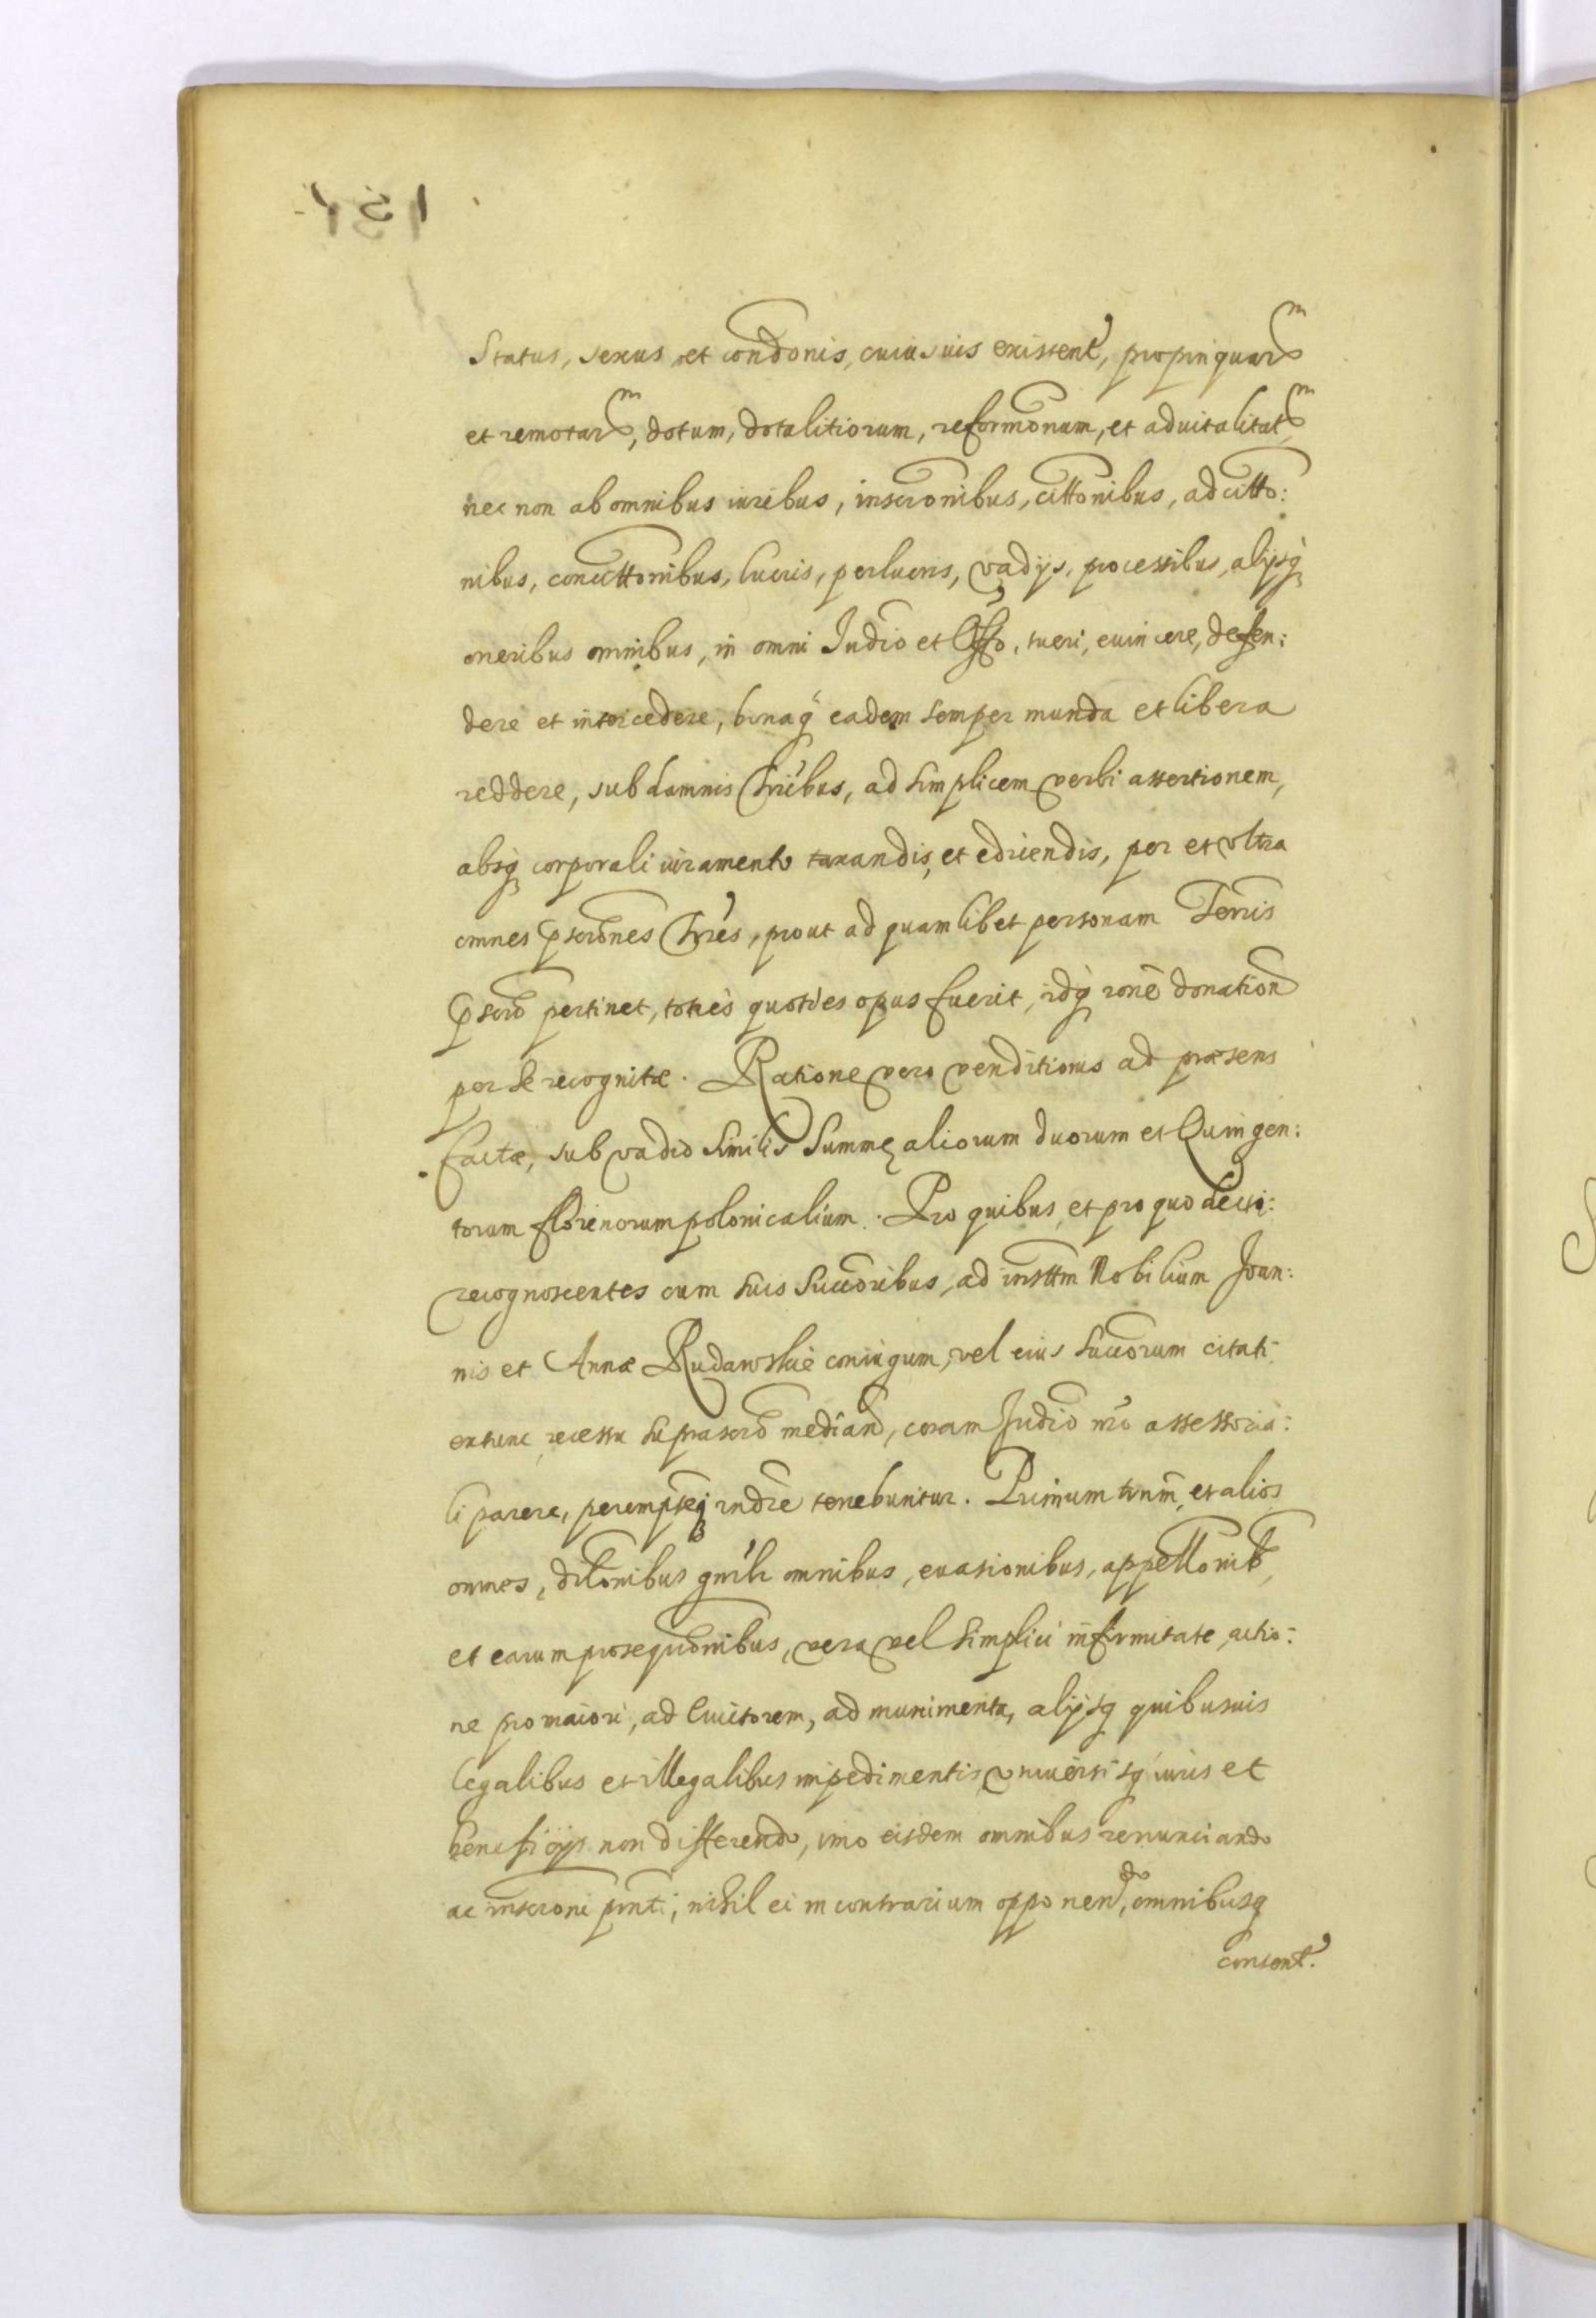 Status, sexus et condonis, cuiusuis existent, propinquarm
et remotarm, dotum, dotalitiorum, reformonum, et aduitalitatm
nec non ab omnibus iuribus, inscronibus, cittonibus, adcitto:
nibus, concittonibus, lucris, perlucris, vadijs, processibus, alijsq
oneribus omnibus, in omni Judio et Offo, tueri, euincere, defen:
dere et intercedere, bonaq eadem semper munda et libera
reddere, sub damnis trribus, ad simplicem verbi assertionem,
absq corporali iuramento taxandis, et edriendis, per et vltra
omnes pscrones trres, prout ad quamlibet personam Terris
pscro pertinet, toties quoties opus fuerit, idq rone donation
per se recognitæ. Ratione vero venditionis ad præsens
factæ, sub vadio similis Summę aliorum duorum et Quingen:
torum florenorum polonicalium. Pro quibus, et pro quo dicti:
recognoscentes cum suis succoribus, ad insttm Nobilium Joan:
nis et Annæ Rudawskie coniugum, vel eius succorum citati
extunc recessu suprascro median, coram Judio nro assessoria:
li parere, peremptq rndre tenebuntur. Primum trnm, et alios
omnes, dilonibus gnrli omnibus, euasionibus, appellonib,
et earum prosequonibus, vera vel simplici infirmitate, actio:
ne pro maiori, ad Euictorem, ad munimenta, alijsq quibusuis
legalibus et illegalibus impedimentis, vniuersisq iuris et
beneficijs non differendo, imo eisdem omnibus renunciando
ac inscroni pnti, nihil ei in contrarium opponendo, omnibusq
consent.